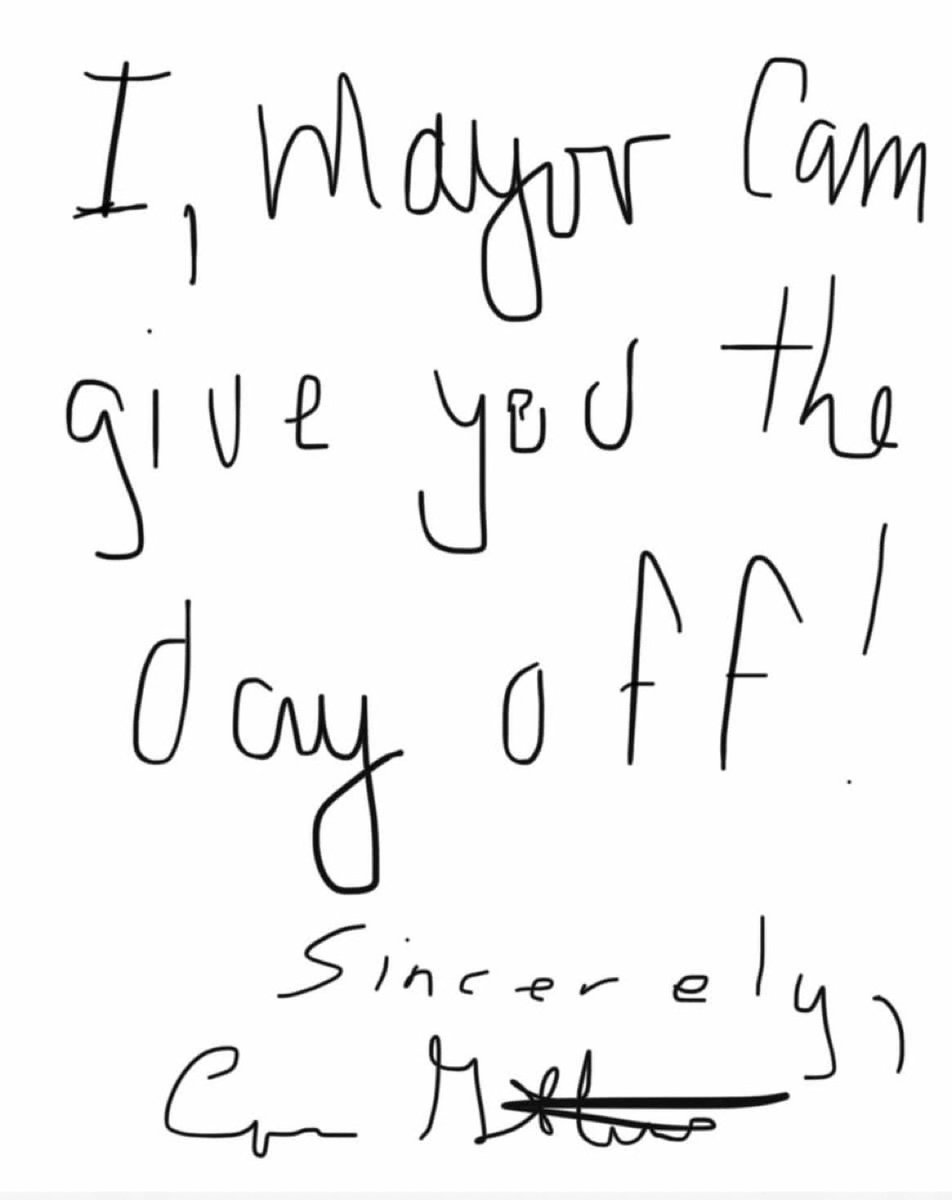 I, Mayor Cam
give you the
day off!
Sincerely,
Cam